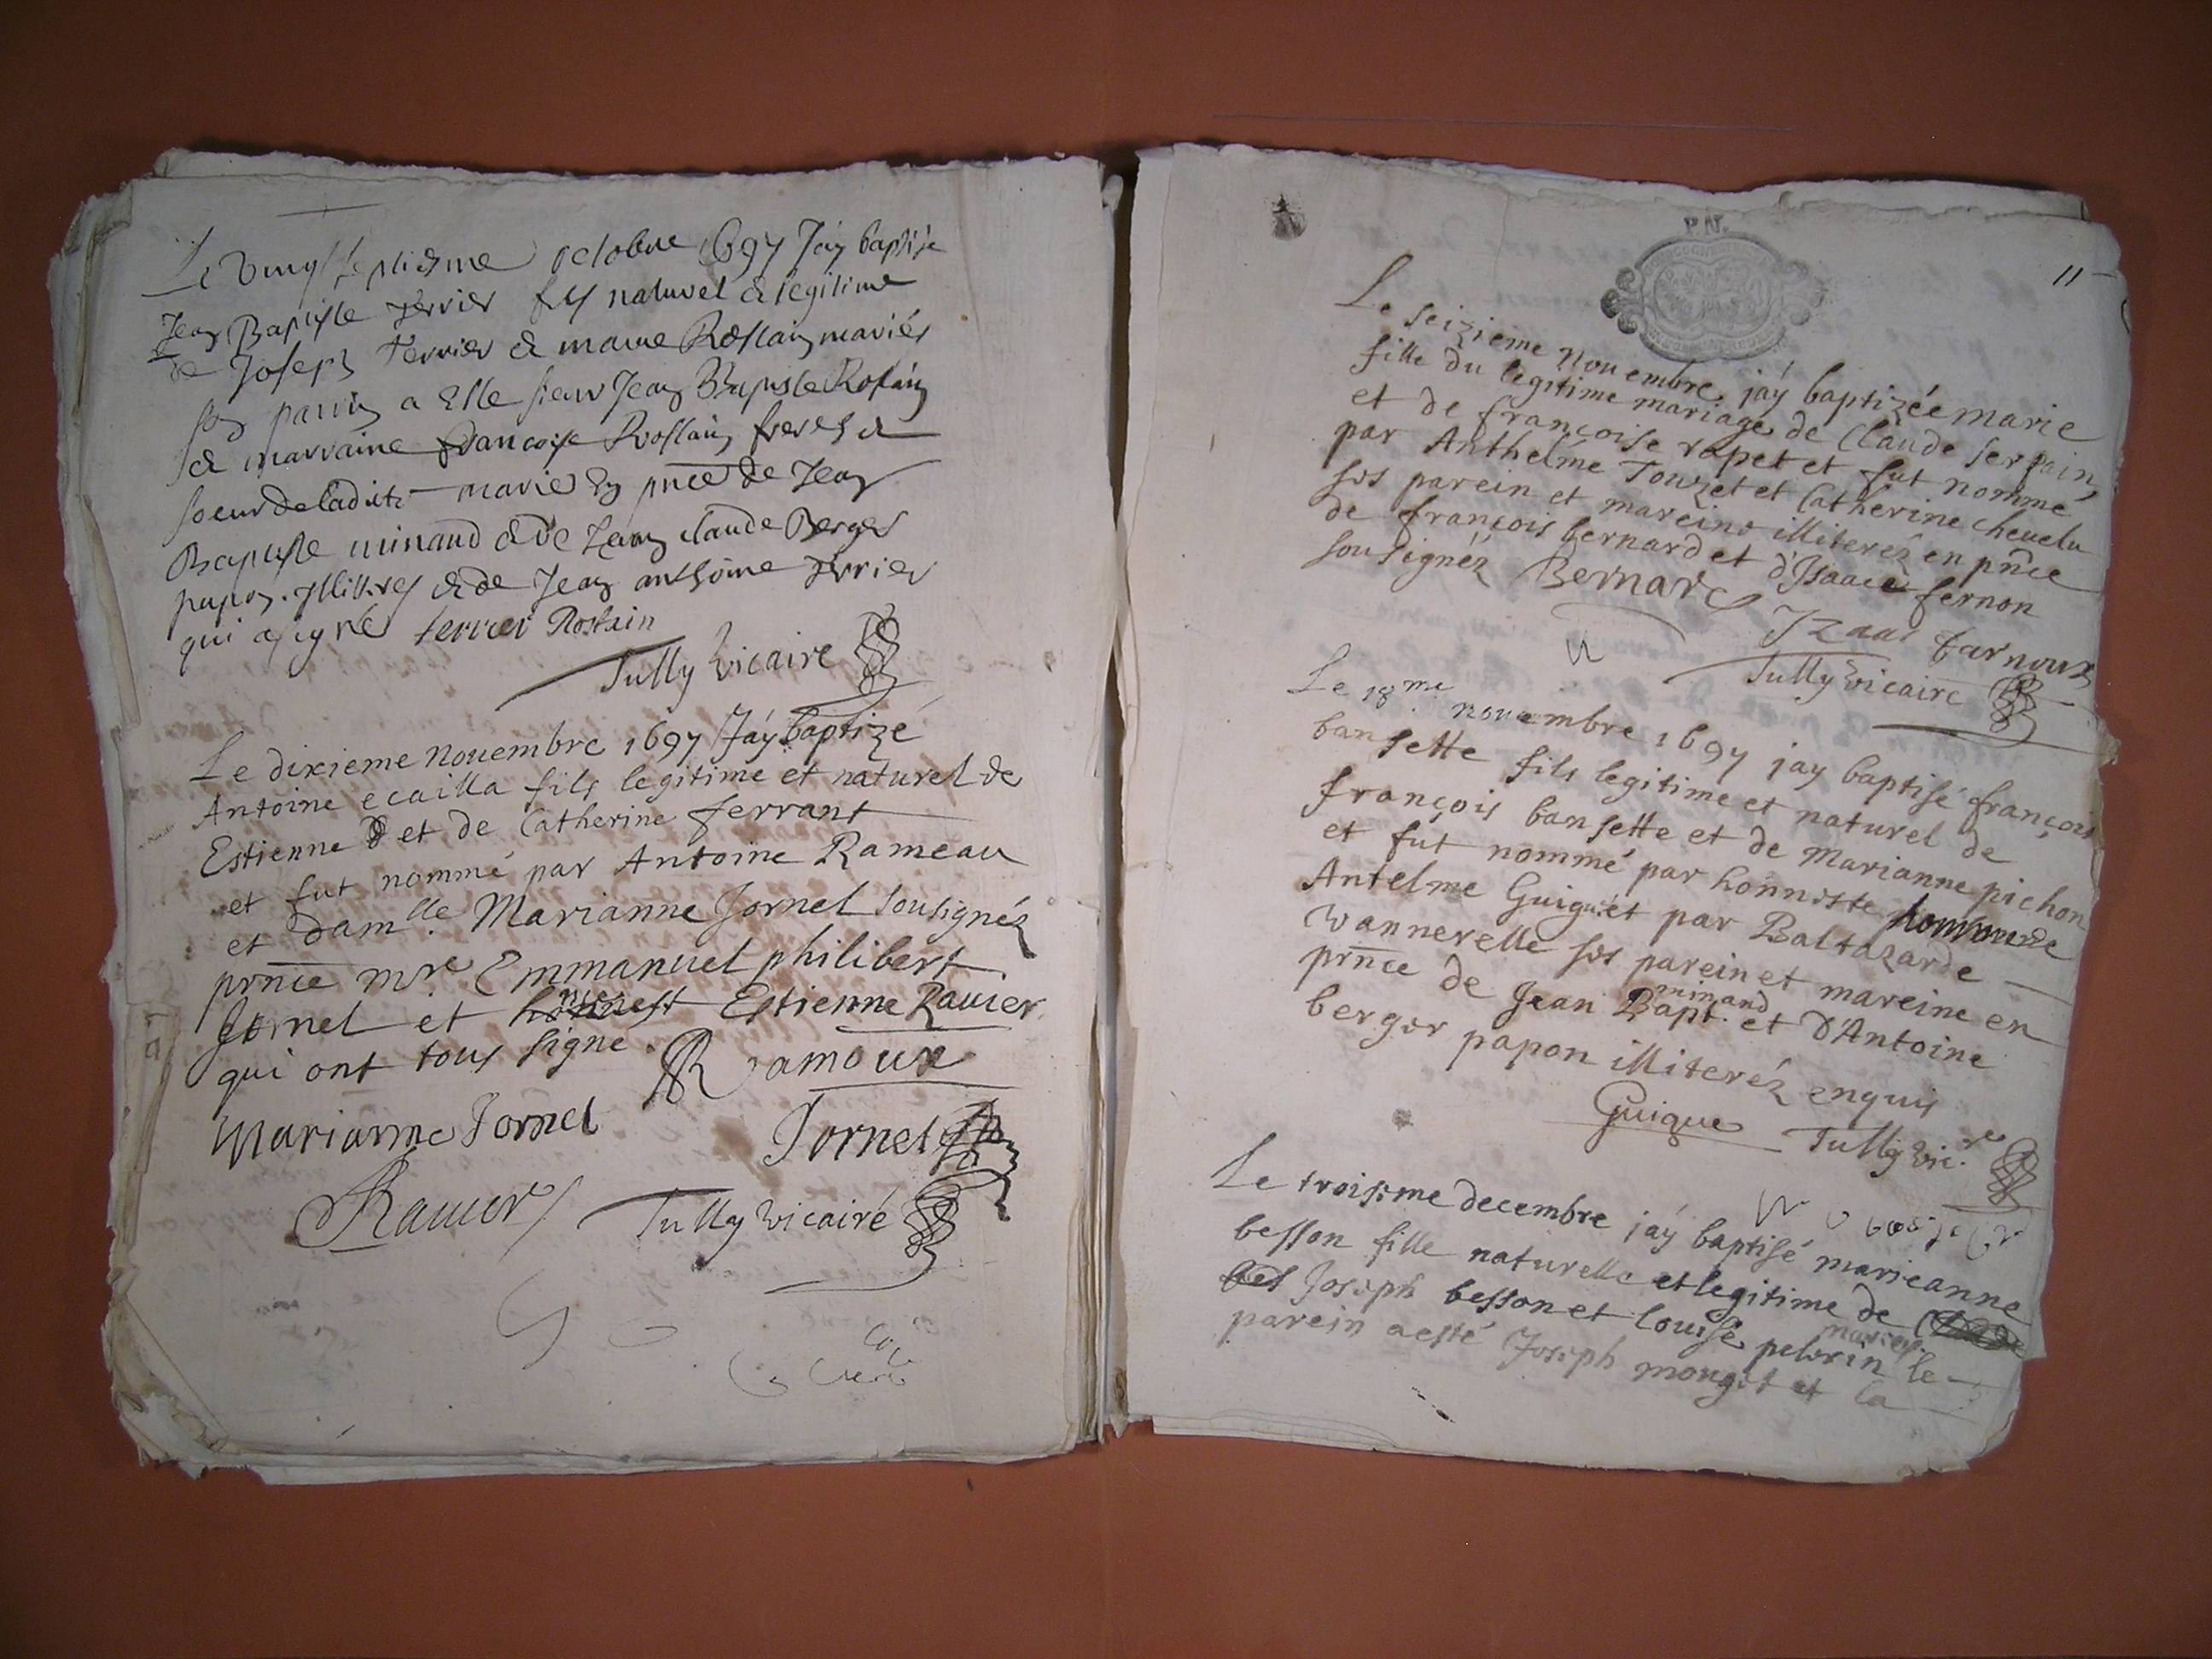 Le vingt septiesme octobre 1697 J'ay baptise
Jean Baptiste Terrier fils naturel & legitime
de Joseph Terrier & marie Rostain mariés
son parrin a Esté sieur Jean Baptiste Rostain
& marraine francoise Rostain freres &
soeur de ladite marie En pnce de Jean
Baptiste minaud & de Jean claude Berger
papon. illitrés & de Jean anthoine Terrier
qui a signé terrier Rostain
Tully vicaire
Le dixieme nouembre 1697 J'ay baptizé
Antoine ecailla fils legitime et naturel de
Estienne et de Catherine ferrant
et fut nommé par Antoine Rameau
et dam.lle Marianne Jornel sousignéz
prnce mre. Emmanuel philibert
Jornel et Estienne Rauier
qui ont tous signe. Ramoux
Marianne Jornel
Jornel
Rauier
Tully vicaire
P.N.
11
Le seizieme nouembre j'ay baptizée marie
fille du legitime mariage de Claude serpain
et de françoise rapet et fut nommé
par Anthelme Touzet et Catherine cheuelu
ses parein et mareine illiteréz en pnce
de françois bernard et d'Isaac fernon
sousignéz Bernard
Izaac farnoux
Tully vicaire
Le 18.me nouembre 1697 jay baptisé françois
bansette fils legitime et naturel de
françois bansette et de Marianne pichon
et fut nommé par honneste homme
Antelme Guiguet par Baltazarde
Wannerelle ses parein et mareine en
minand
prnce de Jean Bapt. et d'Antoine
berger papon illiteréz enquis
Guigue Tully vic.re
Le troisime decembre j'ay baptisé marieanne
besson fille naturelle et legitime de
Joseph besson et louise pelorin le
mariés
parein aesté Joseph monget et la